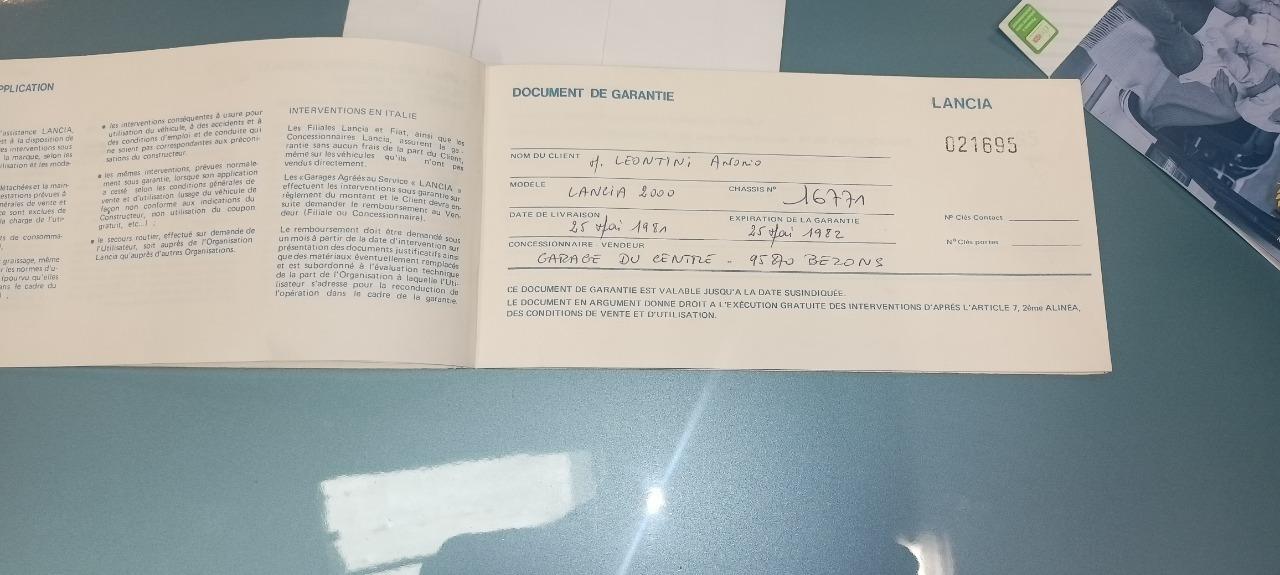 PPLICATION
'assistance LANCIA,
est à la disposition de
es interventions sous
la marque, selon les
ilisation et les mode-
étachées et la main-
estations prévues à
nérales de vente et
ce sont exclues de
la charge de l'uti-
ts de consomma-
graissage, même
r les normes d'u-
(pourvu qu'elles
ans le cadre du
) .
• les interventions conséquentes à usure pour
utilisation du véhicule, à des accidents et à
des conditions d'emploi et de conduite qui
ne soient pas correspondantes aux préconi-
sations du constructeur.
• les mêmes interventions, prévues normale-
ment sous garantie, lorsque son application
a cessé selon les conditions générales de
vente et d'utilisation (usage du véhicule de
façon non conforme aux indications du
Constructeur, non utilisation du coupon
gratuit, etc...) .
• le secours routier, effectué sur demande de
l'Utilisateur, soit auprès de l'Organisation
Lancia qu'auprès d'autres Organisations.
INTERVENTIONS EN ITALIE
Les Filiales Lancia et Fiat, ainsi que les
Concessionnaires Lancia, assurent la ga-
rantie sans aucun frais de la part du Client,
même sur les véhicules qu'ils n'ont pas
vendus directement.
Les «Garages Agréés au Service « LANCIA »
effectuent les interventions sous garantie sur
règlement du montant et le Client devra en-
suite demander le remboursement au Ven-
deur (Filiale ou Concessionnaire).
Le remboursement doit être demandé sous
un mois à partir de la date d'intervention sur
présentation des documents justificatifs ainsi
que des matériaux éventuellement remplacés
et est subordonné à l'évaluation technique
de la part de l'Organisation à laquelle l'Uti-
lisateur s'adresse pour la reconduction de
l'opération dans le cadre de la garantie.
DOCUMENT DE GARANTIE
LANCIA
021695
NOM DU CLIENT M. LEONTINI Antonio
MODÈLE LANCIA 2000 CHASSIS N° 16771
DATE DE LIVRAISON 25 Mai 1981 EXPIRATION DE LA GARANTIE 25 Mai 1982
N° Clés Contact
N° Clés portes
CONCESSIONNAIRE VENDEUR
GARAGE DU CENTRE - 95870 BEZONS
CE DOCUMENT DE GARANTIE EST VALABLE JUSQU'A LA DATE SUSINDIQUÉE.
LE DOCUMENT EN ARGUMENT DONNE DROIT A L'EXÉCUTION GRATUITE DES INTERVENTIONS D'APRÉS L'ARTICLE 7, 2ème ALINÉA,
DES CONDITIONS DE VENTE ET D'UTILISATION.